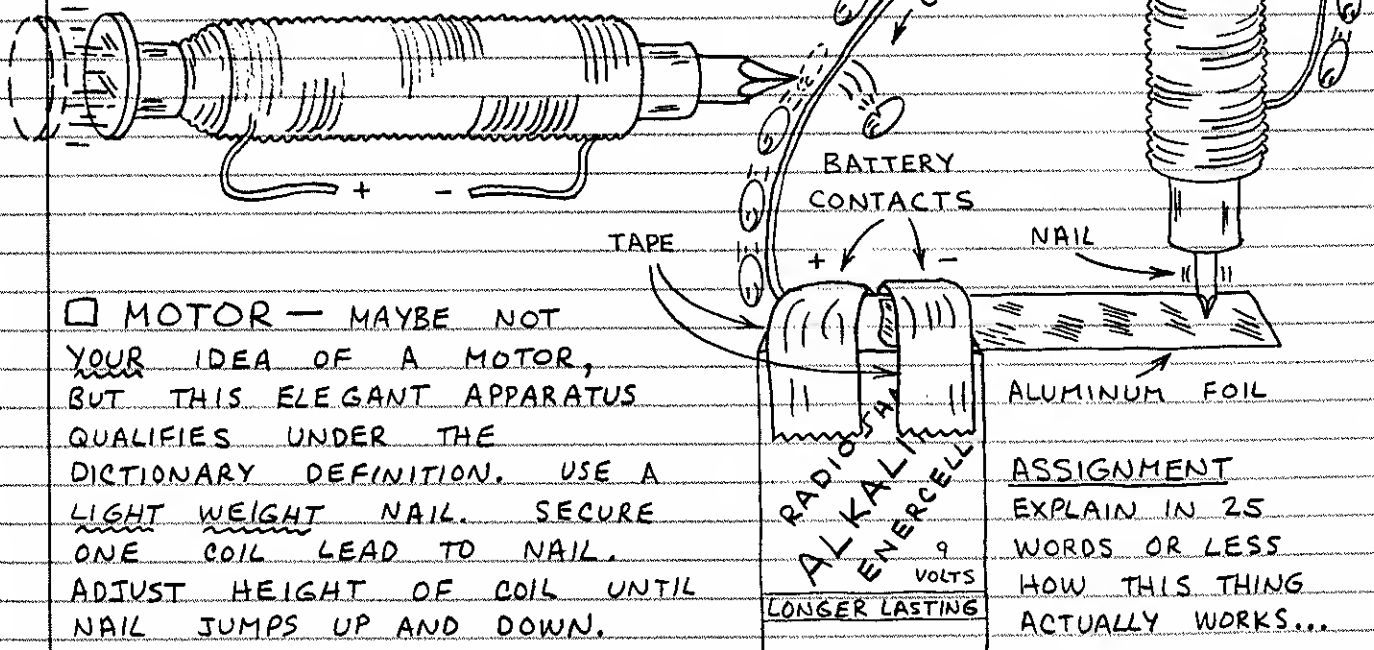 + -
BATTERY
CONTACTS
TAPE
+ -
NAIL
□ MOTOR — MAYBE NOT
YOUR IDEA OF A MOTOR,
BUT THIS ELEGANT APPARATUS
QUALIFIES UNDER THE
DICTIONARY DEFINITION. USE A
LIGHT WEIGHT NAIL. SECURE
ONE COIL LEAD TO NAIL.
ADJUST HEIGHT OF COIL UNTIL
NAIL JUMPS UP AND DOWN.
RADIO SHA
ALKALI
ENERCELL
9
VOLTS
LONGER LASTING
ALUMINUM FOIL
ASSIGNMENT
EXPLAIN IN 25
WORDS OR LESS
HOW THIS THING
ACTUALLY WORKS...